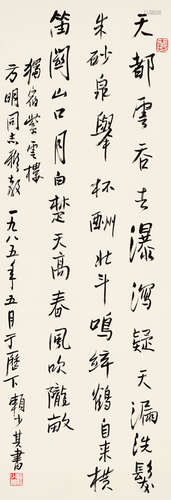 天都雲吞去瀑瀉疑天漏洗髮
朱砂泉舉杯酬北斗鳴絃鶴自来横
笛關山口月白楚天高春風吹隴畝
獨宿紫雲樓
方明同志雅教 一九八五年五月于歷下賴少其書